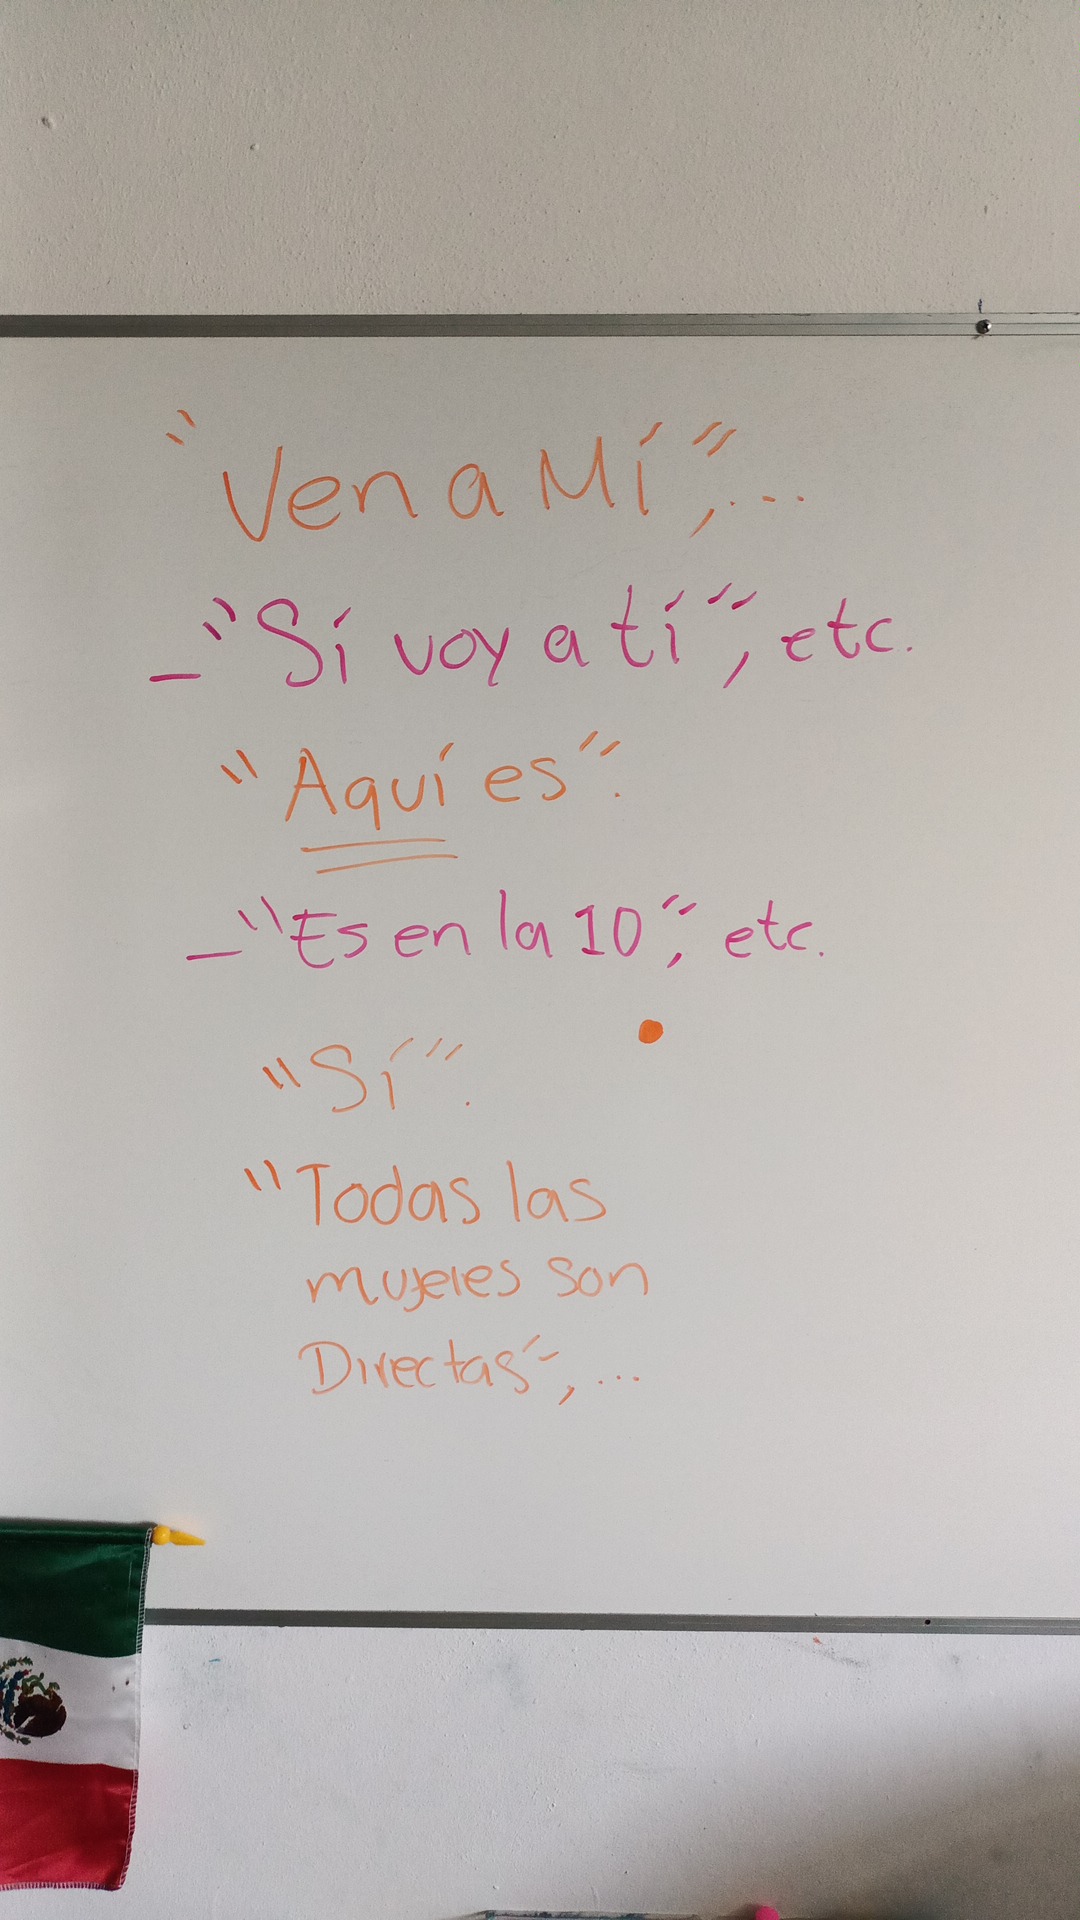 "Ven a Mí",...
-"Sí voy a tí", etc.
"Aquí es".
-"Es en la 10", etc.
"Sí".
"Todas las
mujeres son
Directas",...